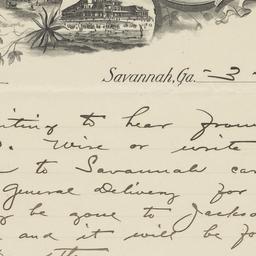 Savannah, Ga. - 3 -
iting to hear from
. Wire or write
to Savannah car
General Delivery for
be gone to Jackso
and it will be fo